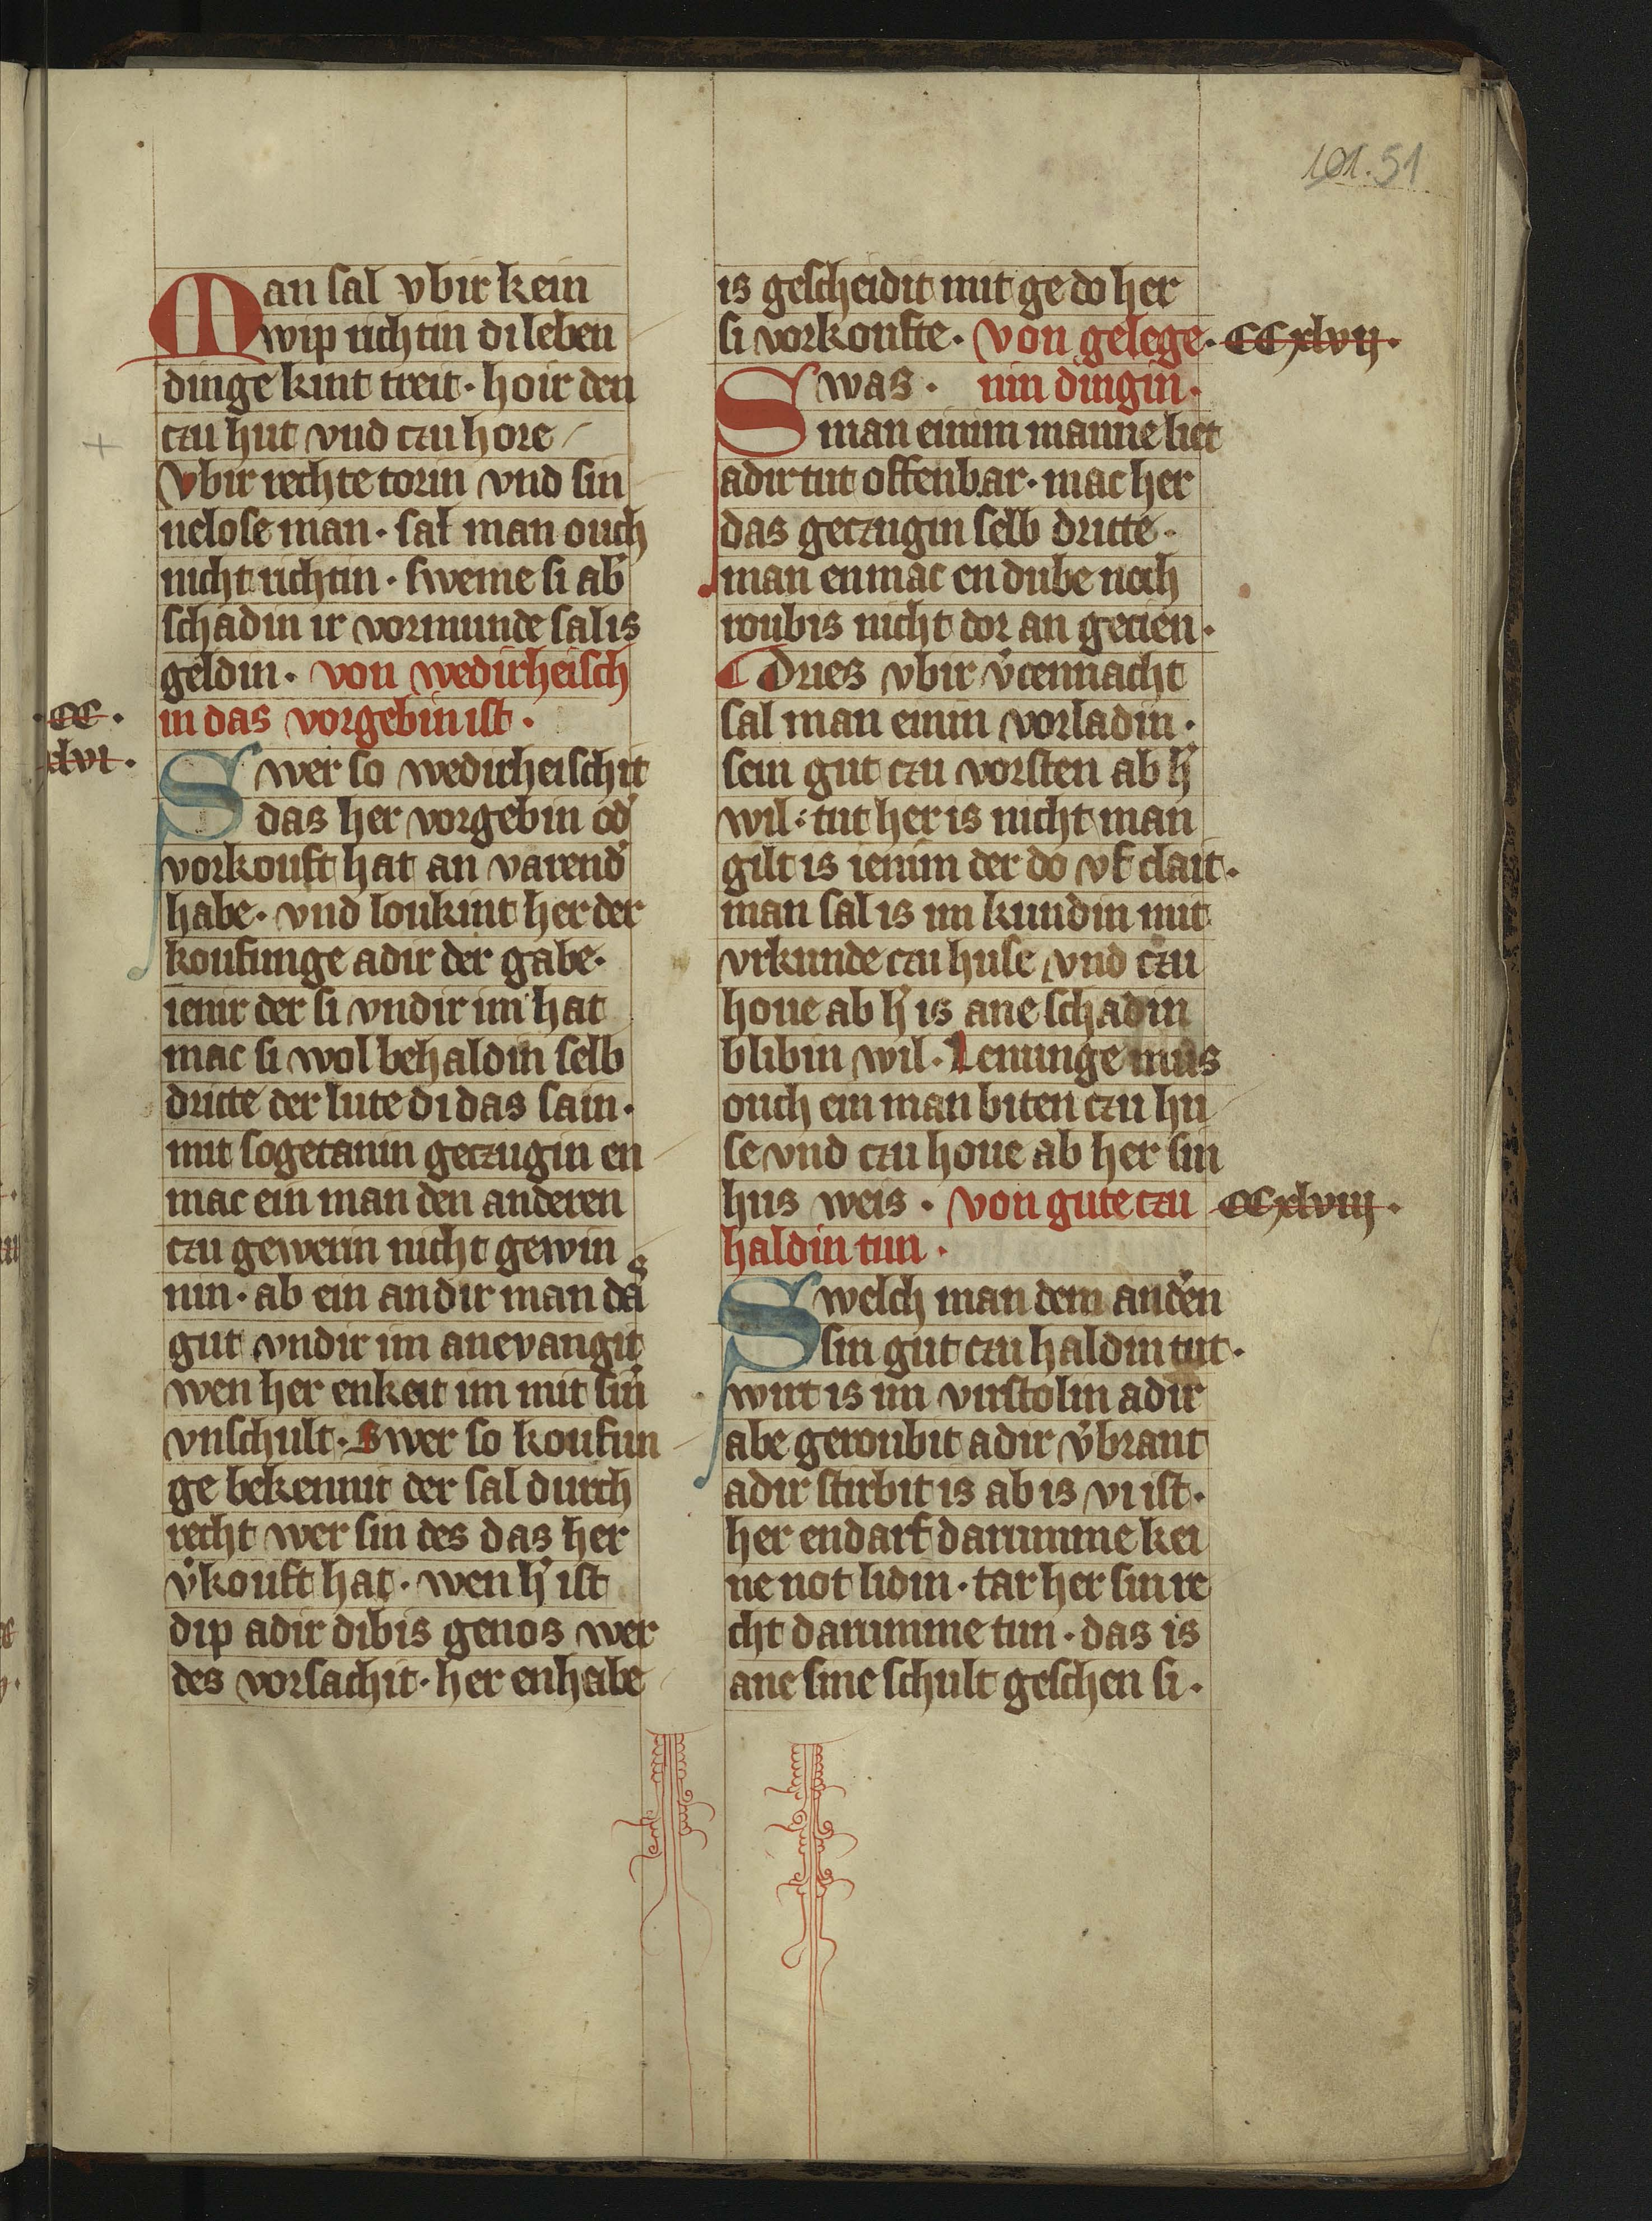 101. 51
Man sal vbir kein
wip richtin di leben
dinge kint treit · hoir den
czu hut vnd czu hore
Vbir rechte torin vnd sin
nelose man · sal man ouch
nicht richtin · sweme si ab᷎
schadin ir vormunde sal is
geldin · von wedirheisch
·CC· in das vorgebin ist ·
xlvi · Swer so wedirheischit
das her vorgebin od᷎
vorkouft hat an varend᷎
habe · vnd loukint her der
koufunge adir der gabe ·
ienir der si vndir im hat
mac si wol behaldin selb
dritte der lute di das sain ·
mit sogetanin geczugin en
mac ein man den anderen
czu gewerin nicht gewin
nin · ab ein andir man das
gut vndir im anevangit
wen her enkeit im mit sin᷎
vnschult · Swer so koufun
ge bekennit der sal durch
recht wer sin des das her
v᷎kouft hat · wen h᷎ ist
dip adir dibis genos wer
des vorsachit · her enhabe
is gescheidit mit ge do her
si vorkoufte · von gelege · CCxlvij ·
Swas · nin dingin ·
man einim manne liet
adir tut offenbar · mac her
das geczugin selb dritte ·
man enmac en dube noch
roubis nicht dor an gecien ·
Dries vbir v᷎cennacht
sal man einin vorladin ·
sein gut czu vorsten ab h᷎
wil : tut her is nicht man
gilt is ienim der do vf clait ·
man sal is im kundin mit
vrkunde czu huse vnd czu
houe ab h᷎ is ane schadin
blibin wil · Lenunge mus
ouch ein man biten czu hu
se vnd czu houe ab her sin
hus weis · von gute czu CCxlviij ·
haldin tun ·
Swelch man dem and᷎en
sin gut czu haldin tut ·
wirt is im virstolin adir
abe geroubit adir v᷎brant
adir stirbit is ab is vi ist ·
her endarf darumme kei
ne not lidin · tar her sin re
cht darumme tun · das is
ane sine schult geschen si ·